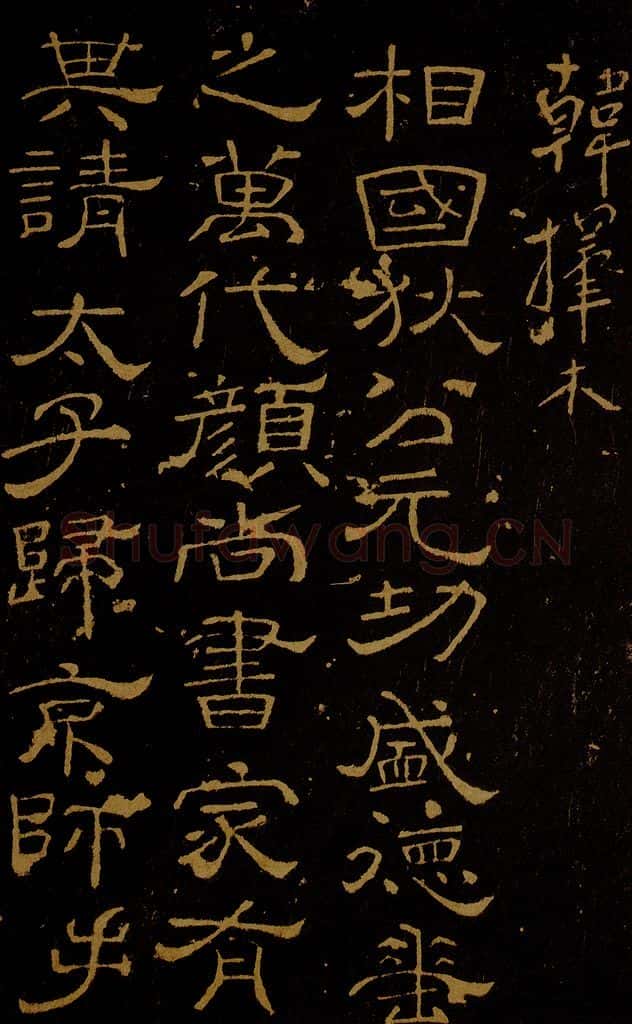 韓擇木
相國狄公元功盛德垂
之萬代顏尚書家有
其請太子歸京師手
Shufawang.CN